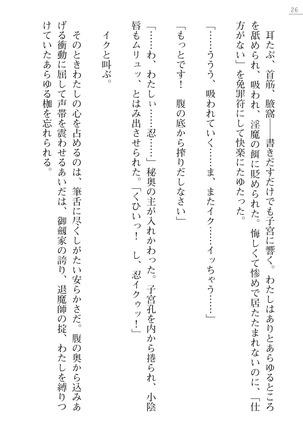 26
耳たぶ、首筋、腋窩――書きだすだけでも子宮に響く。わたしはありとあらゆるところ
を舐められ、吸われ、淫魔の餌に貶められた。悔しくて惨めで居たたまれないのに、「仕
方がない」を免罪符にして快楽にたゆたった。
「……ううう、吸われていく……ま、またイク……イッちゃう……」
「もっとです! 腹の底から搾りだしなさい」
「……わ、わたしぃ……忍……」秘奥の主が入れかわった。子宮孔を内から捲られ、小陰
唇もムリュッ、とはみ出させられた。「くひいっ! し、忍イクゥッ!」
イクと叫ぶ。
そのときわたしの心を占めるのは、筆舌に尽くしがたい安らかさだ。腹の奥から込みあ
げる衝動に屈して声帯を震わせるあいだは、御劔家の誇り、退魔師の掟、わたしを縛りつ
けていたあらゆる枷を忘れられる。